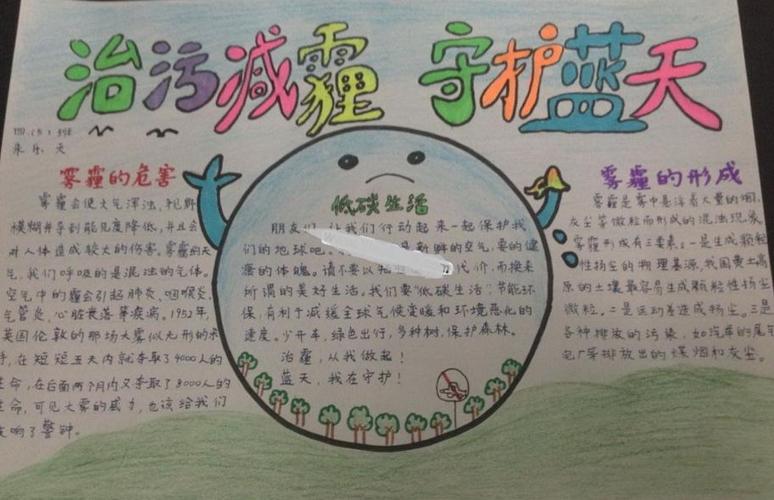 治污减霾 守护蓝天
四（5）班
朱乐天
雾霾的危害
雾霾会使大气浑浊，视野
模糊并导致能见度降低，并且会
对人体造成较大的伤害。雾霾的天
气，我们呼吸的是混浊的气体。
空气中的霾会引起肺炎、咽喉炎、
气管炎、心脏衰落等疾病。1952年，
英国伦敦的那场大雾似无形的杀
手，在短短五天内就杀取了4000人的
生命，在后面两个月内又杀取了8000人的
生命，可见大雾的威力，也该给我们
敲响了警钟。
低碳生活
朋友们，让我们行动起来一起保护我
们的地球吧。是新鲜的空气，要的健
康的体魄。请不要以牺代价，而换来
所谓的美好生活。我们要“低碳生活”，节能环
保，有利于减缓全球气候变暖和环境恶化的
速度。少开车，绿色出行，多种树，保护森林。
治霾，从我做起！
蓝天，我在守护！
雾霾的形成
雾霾是雾中悬浮着大量的烟、
灰尘等微粒而形成的混浊现象。
雾霾形成有三要素：一是生成颗粒
性扬尘的物理基源，我国黄土高
原的土壤最容易生成颗粒性扬尘
微粒。二是运动差造成扬尘。三是
各种排放的污染，如汽车的尾气
电厂等排放出的煤烟和灰尘。